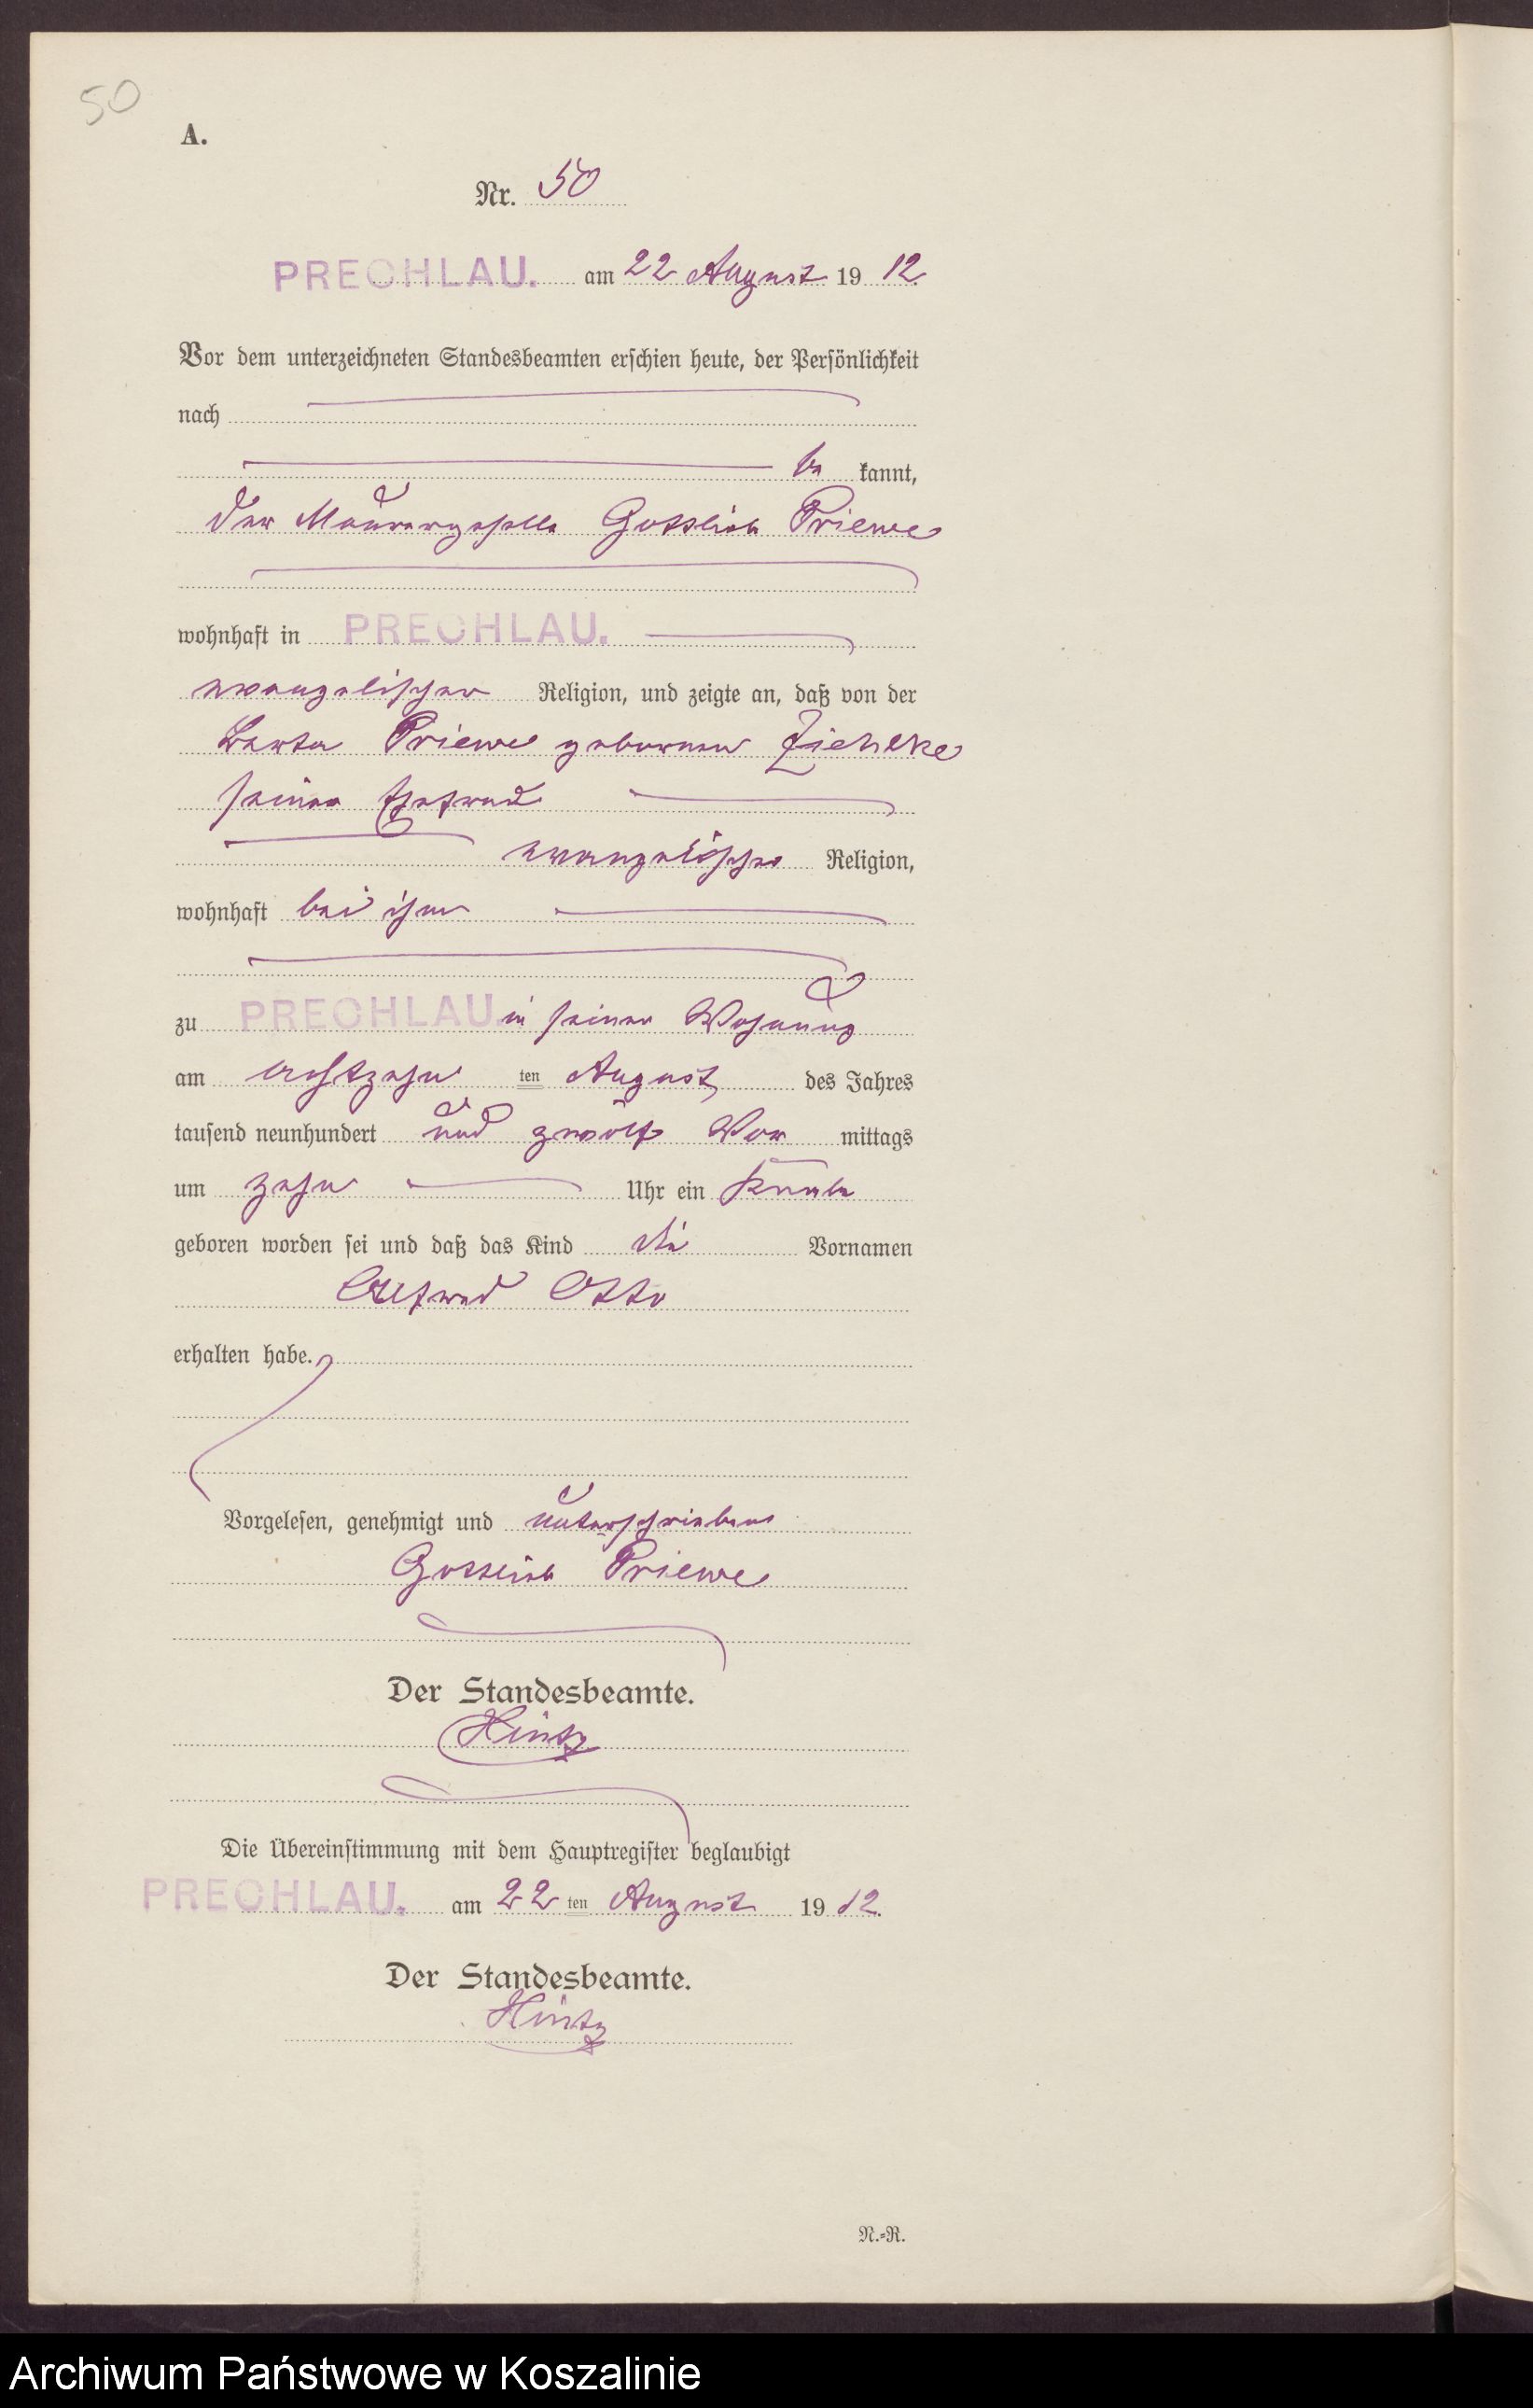 50
A.
Nr. 50
PRECHLAU. am 22 August 19 12.
Vor dem unterzeichneten Standesbeamten erschien heute, der Persönlichkeit
nach
be kannt,
der Maurergeselle Gottlieb Priewe
wohnhaft in PRECHLAU.
evangelischer Religion, und zeigte an, daß von der
Berta Priewe geborenen Ziehlke
seiner Ehefrau
evangelischer Religion,
wohnhaft bei ihm
zu PRECHLAU. in seiner Wohnung
am achtzehn ten August des Jahres
tausend neunhundert und zwölf Vor mittags
um zehn Uhr ein Knabe
geboren worden sei und daß das Kind die Vornamen
Alfred Otto
erhalten habe.
Vorgelesen, genehmigt und unterschrieben
Gottlieb Priewe
Der Standesbeamte.
Hintz
Die Übereinstimmung mit dem Hauptregister beglaubigt
PRECHLAU. am 22 ten August 19 12.
Der Standesbeamte.
Hintz
N.=R.
Archiwum Państwowe w Koszalinie